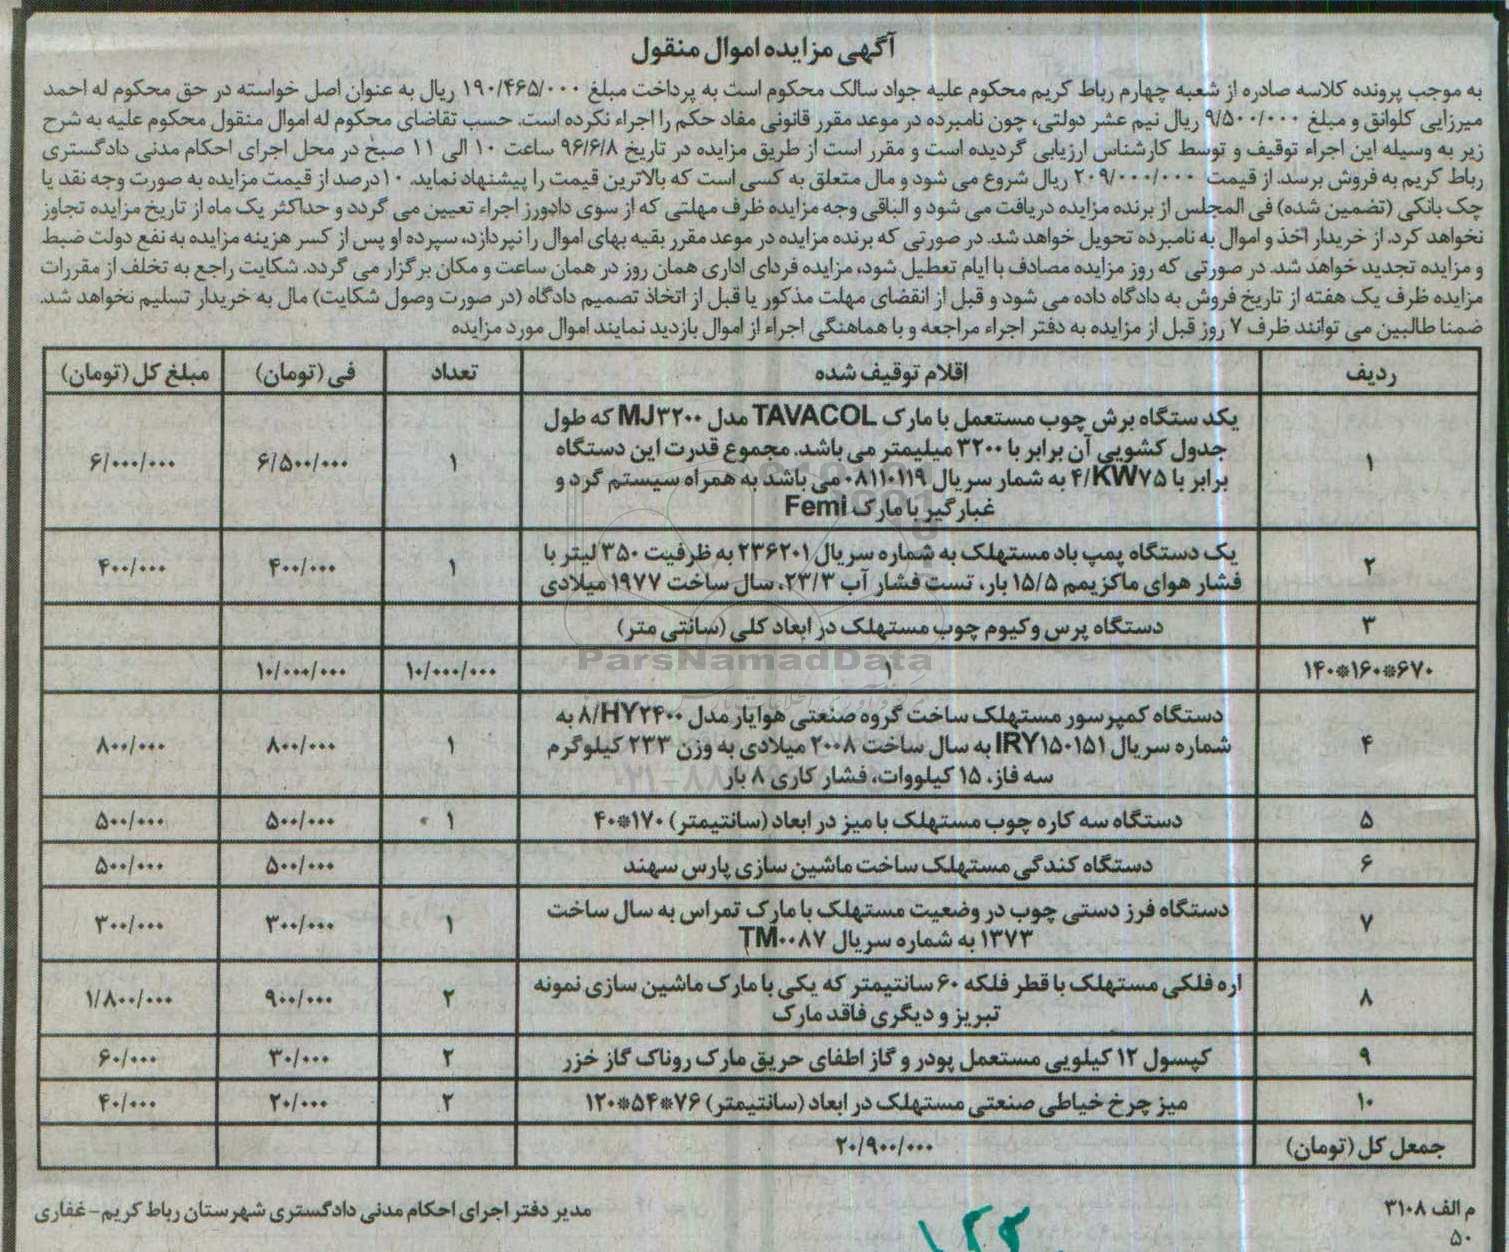 آگهی مزایده اموال منقول
به موجب پرونده کلاسه صادره از شعبه چهارم رباط کریم محکوم علیه جواد سالک محکوم است به پرداخت مبلغ ۱۹۰/۴۶۵/۰۰۰ ریال به عنوان اصل خواسته در حق محکوم له احمد
میرزایی کلوانق و مبلغ ۹/۵۰۰/۰۰۰ ریال نیم عشر دولتی، چون نامبرده در موعد مقرر قانونی مفاد حکم را اجراء نکرده است. حسب تقاضای محکوم له اموال منقول محکوم علیه به شرح
زیر به وسیله این اجراء توقیف و توسط کارشناس ارزیابی گردیده است و مقرر است از طریق مزایده در تاریخ ۹۶/۶/۸ ساعت ۱۰ الی ۱۱ صبح در محل اجرای احکام مدنی دادگستری
رباط کریم به فروش برسد. از قیمت ۲۰۹/۰۰۰/۰۰۰ ریال شروع می شود و مال متعلق به کسی است که بالاترین قیمت را پیشنهاد نماید. ۱۰درصد از قیمت مزایده به صورت وجه نقد یا
چک بانکی (تضمین شده) فی المجلس از برنده مزایده دریافت می شود و الباقی وجه مزایده ظرف مهلتی که از سوی دادورز اجراء تعیین می گردد و حداکثر یک ماه از تاریخ مزایده تجاوز
نخواهد کرد. از خریدار اخذ و اموال به نامبرده تحویل خواهد شد. در صورتی که برنده مزایده در موعد مقرر بقیه بهای اموال را نپردازد، سپرده او پس از کسر هزینه مزایده به نفع دولت ضبط
و مزایده تجدید خواهد شد. در صورتی که روز مزایده مصادف با ایام تعطیل شود، مزایده فردای اداری همان روز در همان ساعت و مکان برگزار می گردد. شکایت راجع به تخلف از مقررات
مزایده ظرف یک هفته از تاریخ فروش به دادگاه داده می شود و قبل از انقضای مهلت مذکور یا قبل از اتخاذ تصمیم دادگاه (در صورت وصول شکایت) مال به خریدار تسلیم نخواهد شد.
ضمنا طالبین می توانند ظرف ۷ روز قبل از مزایده به دفتر اجراء مراجعه و با هماهنگی اجراء از اموال بازدید نمایند اموال مورد مزایده
ردیف اقلام توقیف شده تعداد فی (تومان) مبلغ کل (تومان)
یکدستگاه برش چوب مستعمل با مارک TAVACOL مدل MJ۳۲۰۰ که طول
جدول کشویی آن برابر با ۳۲۰۰ میلیمتر می باشد. مجموع قدرت این دستگاه
۱ ۱ ۶/۵۰۰/۰۰۰ ۶/۰۰۰/۰۰۰
برابر با ۴/KW۷۵ به شمار سریال ۰۸۱۱۰۱۱۹ می باشد به همراه سیستم گرد و
غبارگیر با مارک Femi
یک دستگاه پمپ باد مستهلک به شماره سریال ۲۳۶۲۰۱ به ظرفیت ۳۵۰ لیتر با
۲ ۱ ۴۰۰/۰۰۰ ۴۰۰/۰۰۰
فشار هوای ماکزیمم ۱۵/۵ بار، تست فشار آب ۲۳/۳، سال ساخت ۱۹۷۷ میلادی
۳ دستگاه پرس وکیوم چوب مستهلک در ابعاد کلی (سانتی متر)
۱۴۰*۱۶۰*۶۷۰ ۱ ۱۰/۰۰۰/۰۰۰ ۱۰/۰۰۰/۰۰۰
ParsNamadData
دستگاه کمپرسور مستهلک ساخت گروه صنعتی هوایار مدل ۸/HY۲۴۰۰ به
۴ شماره سریال IRY۱۵۰۱۵۱ به سال ساخت ۲۰۰۸ میلادی به وزن ۲۳۳ کیلوگرم ۱ ۸۰۰/۰۰۰ ۸۰۰/۰۰۰
سه فاز، ۱۵ کیلووات، فشار کاری ۸ بار
۵ دستگاه سه کاره چوب مستهلک با میز در ابعاد (سانتیمتر) ۱۷۰*۴۰ ۱ ۵۰۰/۰۰۰ ۵۰۰/۰۰۰
۶ دستگاه کندگی مستهلک ساخت ماشین سازی پارس سهند ۵۰۰/۰۰۰ ۵۰۰/۰۰۰
دستگاه فرز دستی چوب در وضعیت مستهلک با مارک تمراس به سال ساخت
۷ ۱ ۳۰۰/۰۰۰ ۳۰۰/۰۰۰
۱۳۷۳ به شماره سریال TM۰۰۸۷
اره فلکی مستهلک با قطر فلکه ۶۰ سانتیمتر که یکی با مارک ماشین سازی نمونه
۸ ۲ ۹۰۰/۰۰۰ ۱/۸۰۰/۰۰۰
تبریز و دیگری فاقد مارک
۹ کپسول ۱۲ کیلویی مستعمل پودر و گاز اطفای حریق مارک روناک گاز خزر ۲ ۳۰/۰۰۰ ۶۰/۰۰۰
۱۰ میز چرخ خیاطی صنعتی مستهلک در ابعاد (سانتیمتر) ۷۶*۵۴*۱۲۰ ۲ ۲۰/۰۰۰ ۴۰/۰۰۰
جمعل کل (تومان) ۲۰/۹۰۰/۰۰۰
م الف ۳۱۰۸ مدیر دفتر اجرای احکام مدنی دادگستری شهرستان رباط کریم- غفاری
۵۰